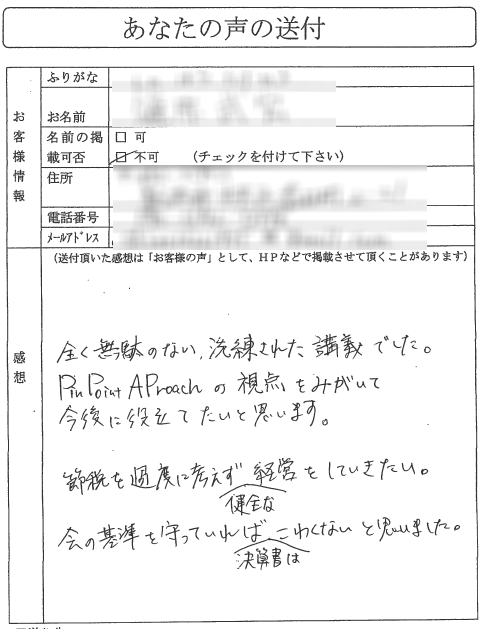 あなたの声の送付
お客様情報
ふりがな
お名前
名前の掲載可否
□ 可
☑ 不可 （チェックを付けて下さい）
住所
電話番号
ﾒｰﾙｱﾄﾞﾚｽ
感想
（送付頂いた感想は「お客様の声」として、ＨＰなどで掲載させて頂くことがあります）
全く無駄のない、洗練された講義でした。
PinPoint AProachの視点をみがいて
今後に役立てたいと思います。
節税を過度に考えず経営をしていきたい。
健全な
会の基準を守っていれば、こわくないと思いました。
決算書は